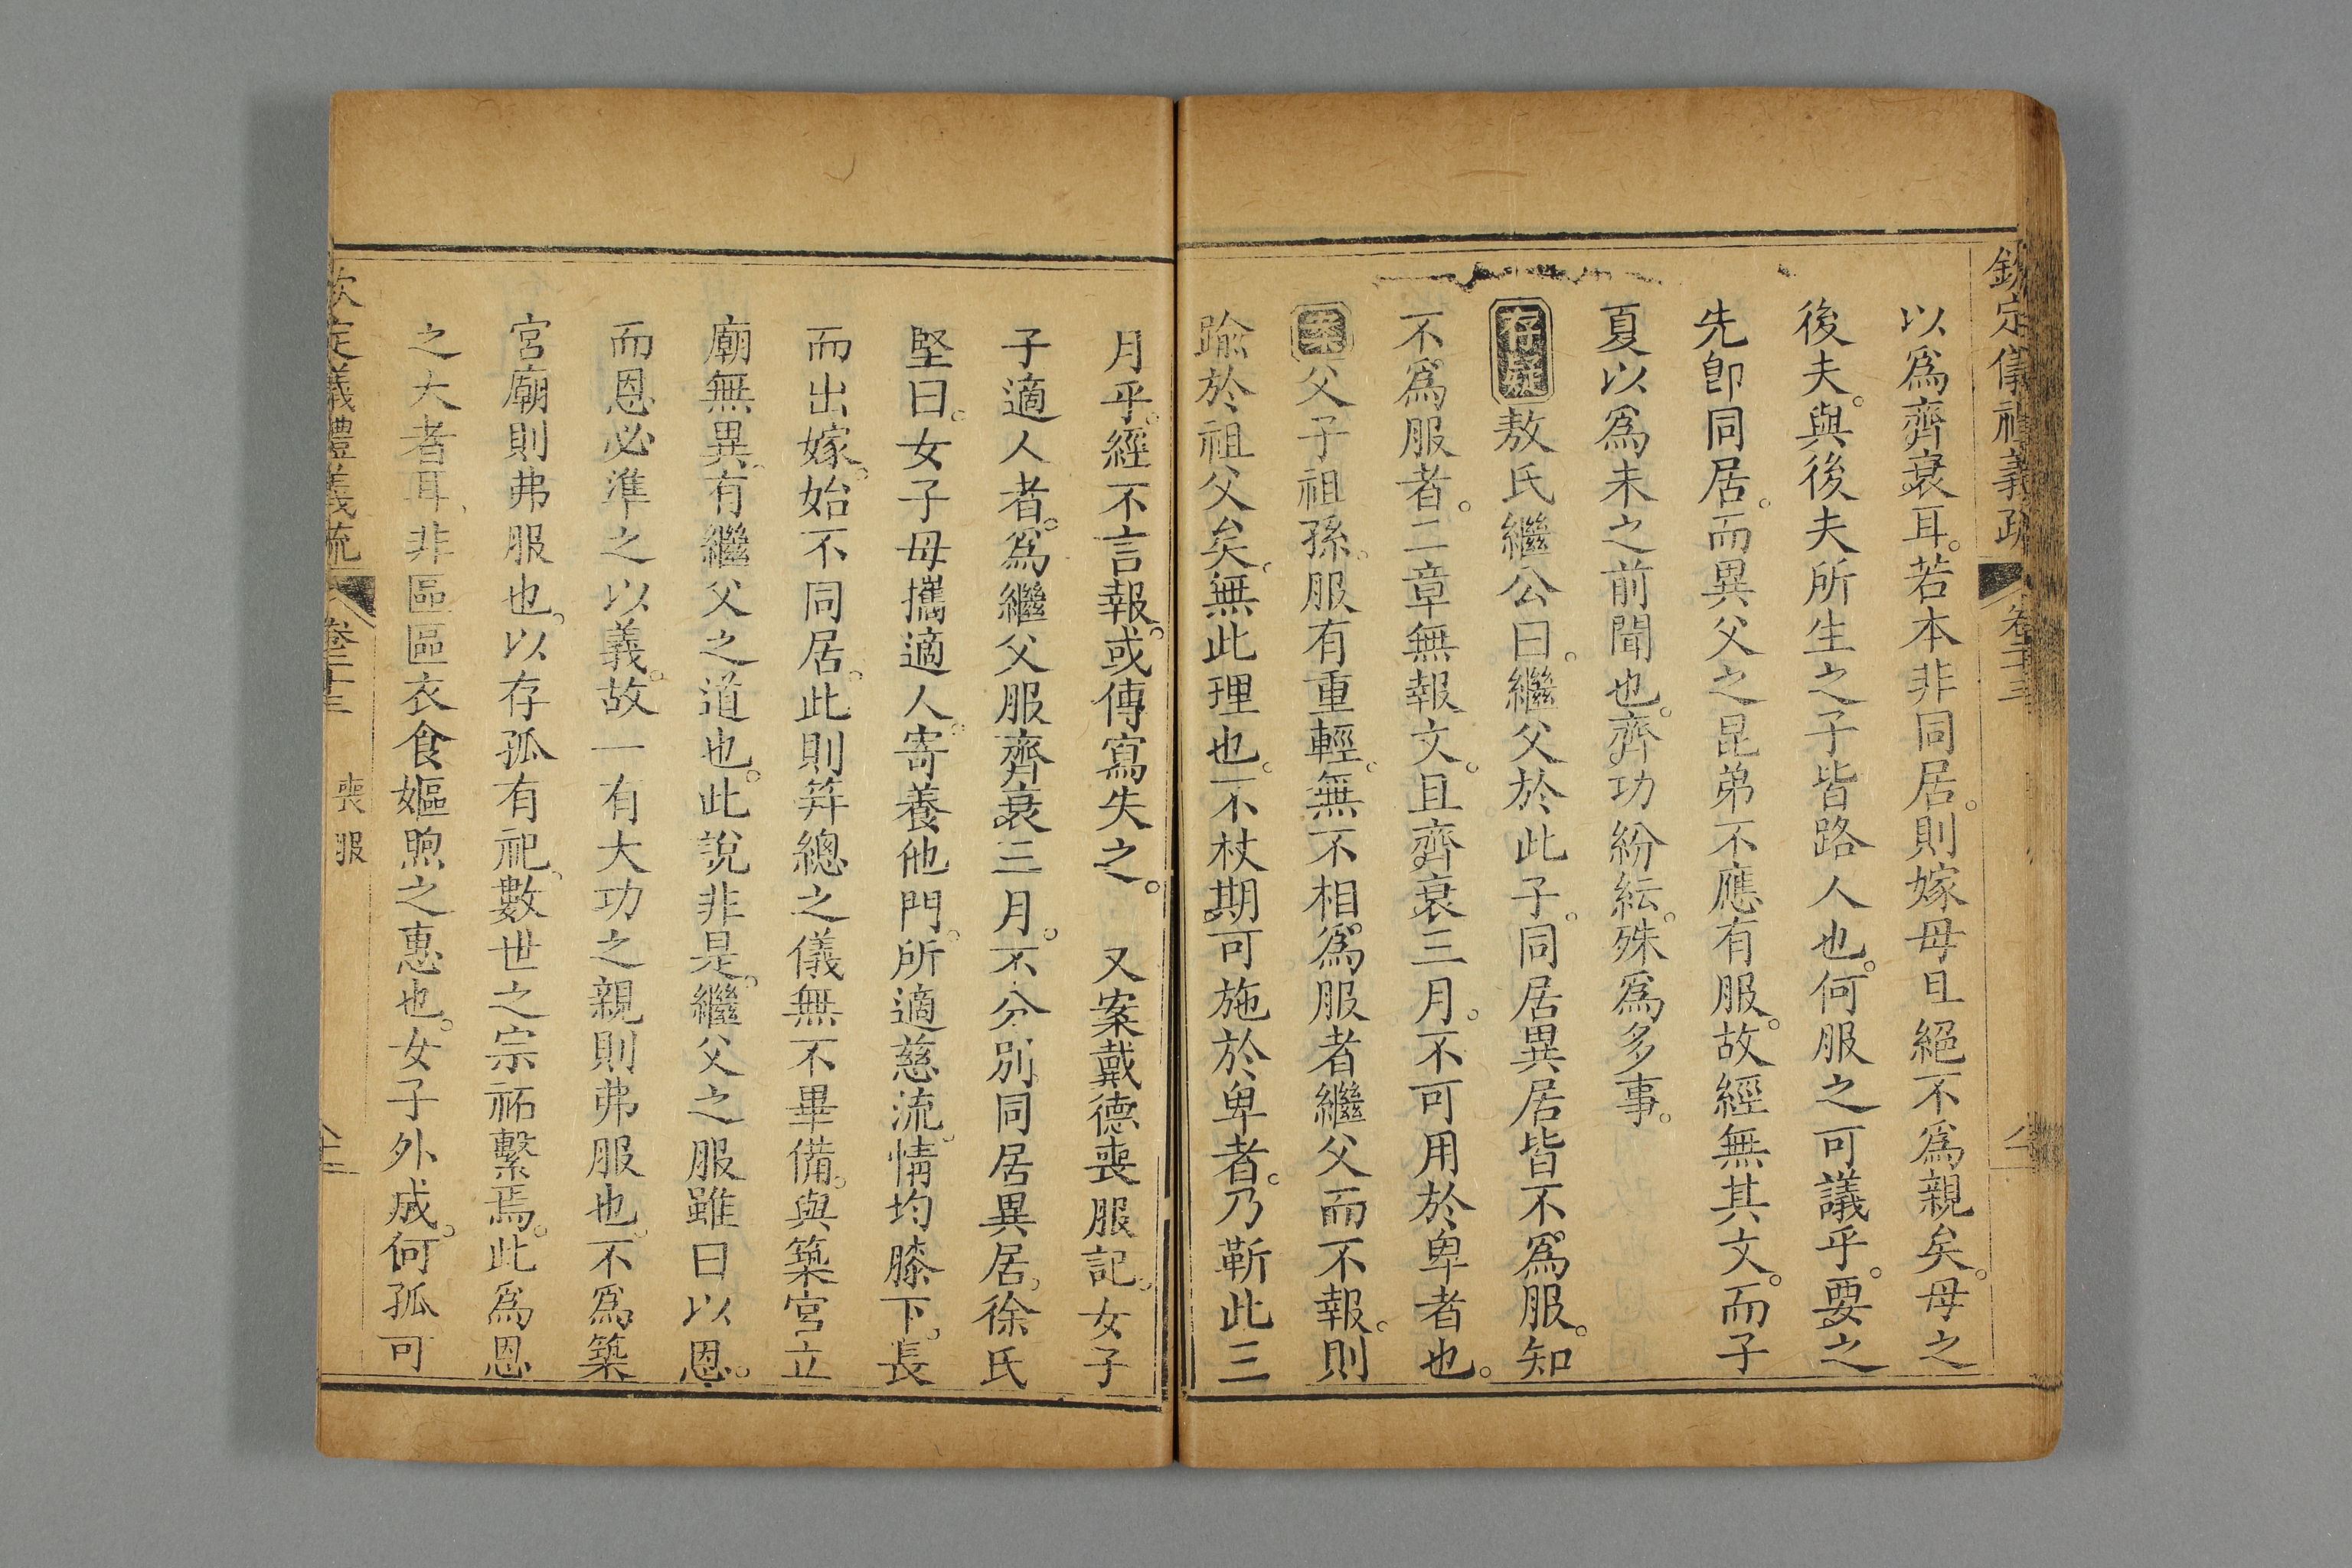 欽定儀禮義疏 卷二十三
以爲齊衰耳。若本非同居。則嫁母且絕不爲親矣。母之
後夫。與後夫所生之子皆路人也。何服之可議乎。要之
先卽同居。而異父之昆弟不應有服。故經無其文。而子
夏以爲未之前聞也。齊功紛紜。殊爲多事。
存疑敖氏繼公曰。繼父於此子。同居異居皆不爲服。知
不爲服者。二章無報文。且齊衰三月。不可用於卑者也。
案父子祖孫。服有重輕。無不相爲服者繼父而不報。則
踰於祖父矣。無此理也。不杖期。可施於卑者。乃靳此三
月乎。經不言報。或傳寫失之。 又案戴德喪服記。女子
子適人者。爲繼父服齊衰三月。不分別同居異居。徐氏
堅曰。女子母攜適人。寄養他門。所適慈流。情均膝下。長
而出嫁。始不同居。此則笄總之儀無不畢備。與築宮立
廟無異。有繼父之道也。此說非是。繼父之服雖曰以恩。
而恩必準之以義。故一有大功之親則弗服也。不爲築
宮廟則弗服也。以存孤有祀。數世之宗祏繫焉。此爲恩
之大者耳、非區區衣食嫗煦之惠也。女子外成。何孤可
欽定儀禮義疏 卷二十三 喪服